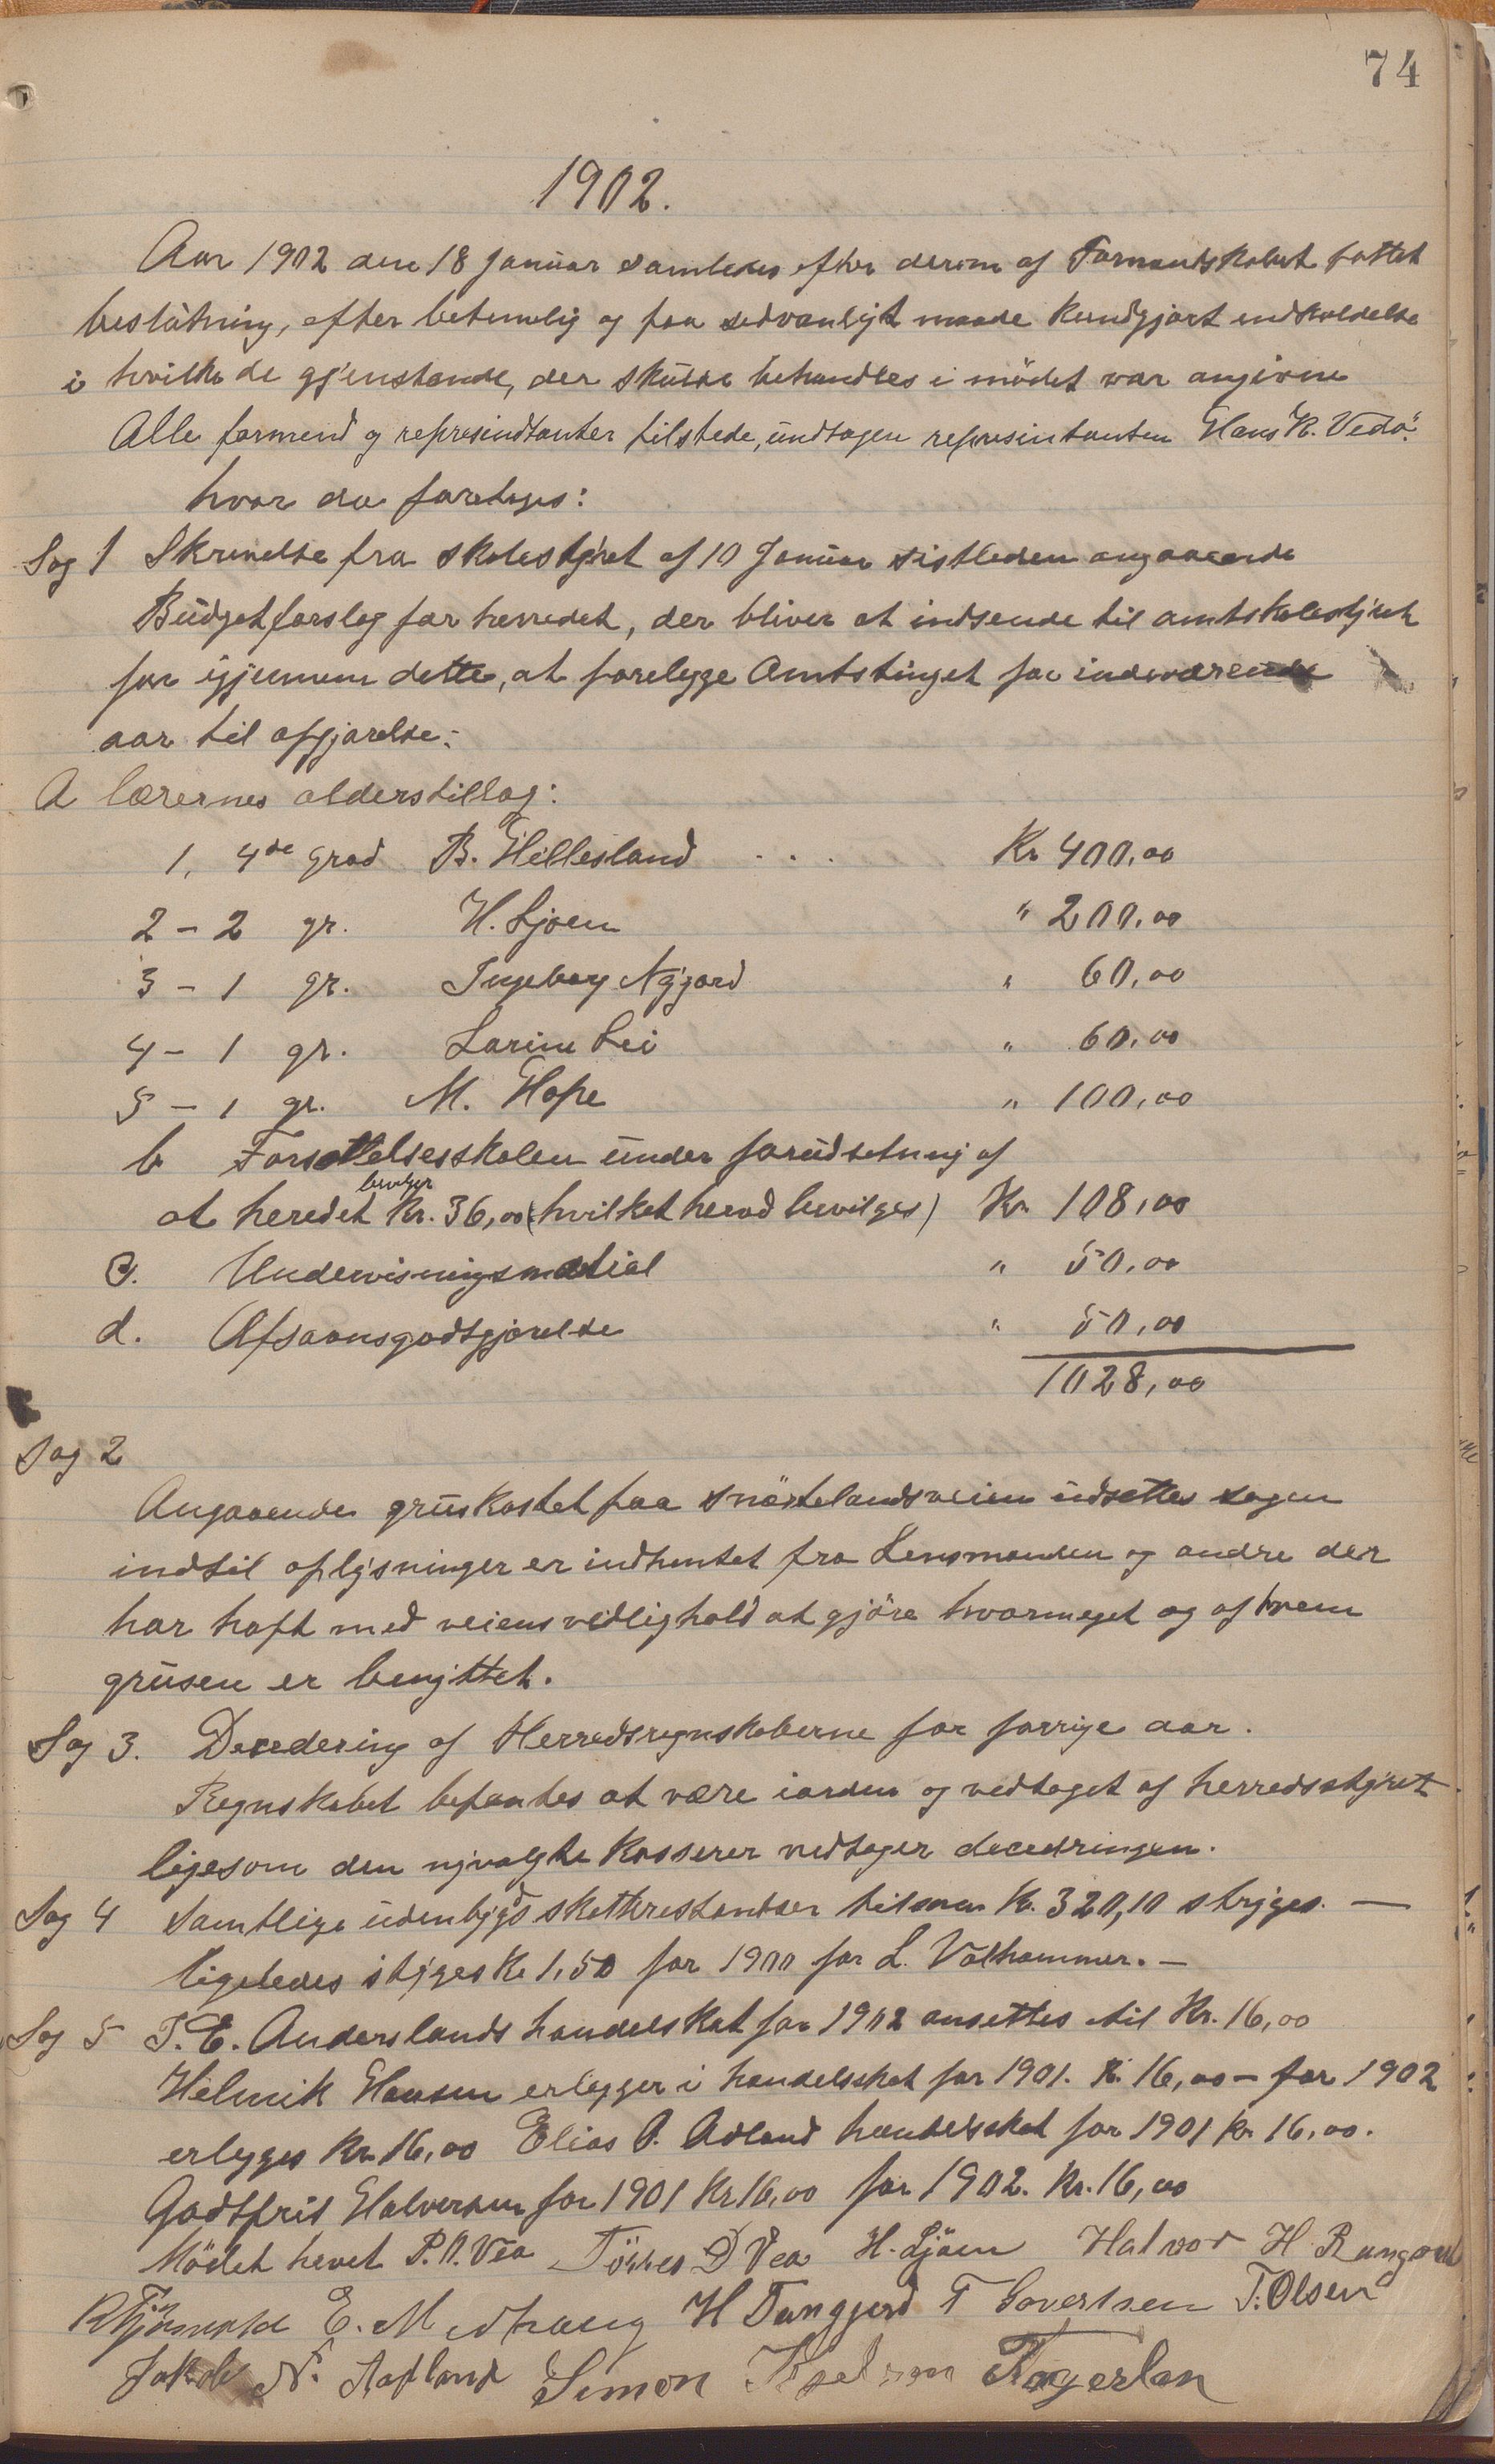 74
1902.
Aar 1902 den 18 Januar samledes efter derom af Formandskabet fattet
beslutning, efter betimelig og paa sedvanligt maade kundgjort indkaldelse
i hvilke de gjenstande, der skulde behandles i mödet var angivne
Alle formend og represindtanter tilstede, undtagen represintanten Hans K. Vedö.
hvor da foretoges:
Sag 1 Skrivelse fra skolestyret af 10 Januar sistleden angaaende
Budgetforslag for herredet, der bliver at indsende til amtskolestyret
for igjennem dette, at forelegge Amtstinget for indværende
aar til afgjørelse:
A lærernes alderstillæg:
1, 4de Grad B. Hillesland . . . Kr 400,00
2 - 2 gr. H. Ljoen " 200,00
3 - 1 gr. Ingeborg Nygjard " 60,00
4 - 1 gr. Larine Lei " 60,00
5 - 1 gr. M. Hope " 100,00
b Forsettelsesskolen under forudsetning af
bevilger
at heredet Kr. 36,00 (hvilket herved bevilges) Kr 108,00
c. Undervisningsmatrial " 50,00
d. Afsavnsgodtgjørelse " 50,00
1028,00
Sag 2
Angaaende gruskastet paa Snörtelandsveien udsettes sagen
indtil oplysninger er indhentet fra Lensmanden og andre der
har haft med veiens vedlighold at gjöre hvormeget og af hvem
grusen er benyttet.
Sag 3. Decedering af Herredsregnskaberne for forrige aar.
Regnskabet befantes at være iorden og vedtaget af herredsstyret
ligesom den nyvalgte Kasserer vedtager decedringen.
Sag 4 Samtlige udenbygds skatterestantser tilsmen Kr. 320,10 stryges. —
ligeledes stryges Kr 1,50 for 1900 for L. Valhammer. —
Sag 5 T. E. Anderslands handelskat for 1902 ansettes til Kr. 16,00
Helmik Hansen erlegger i handelsskat for 1901. Kr. 16,00 - for 1902
erlegges Kr. 16,00 Elias A. Adland handelsskat for 1901 Kr. 16,00.
Godtfrit Halversen for 1901 Kr 16,00 for 1902. Kr. 16,00
Mödet hevet P. A. Vea Tönnes D Vea H. Ljöen Halvor H
E. Medhaug H Tangjerd T Govertsen T. Olsen
Jakob N. Aafland Simon Fagerlan